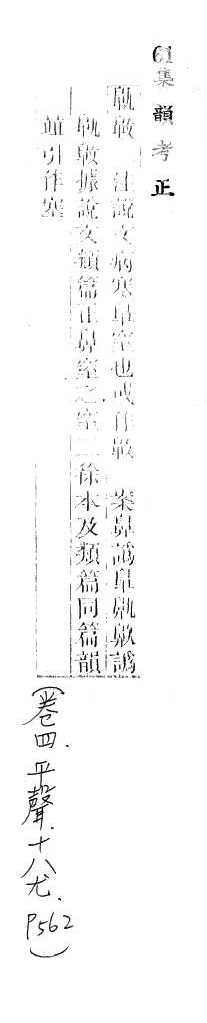 61集韻考正
鼽䶊 注說文病寒鼻窒也或作䶊 案鼻譌皐鼽䶊譌
鼽䶊據說文類篇正鼻窒之窒二徐本及類篇同篇韻
竝引作塞
(卷四.平聲.十八尤.
P562)